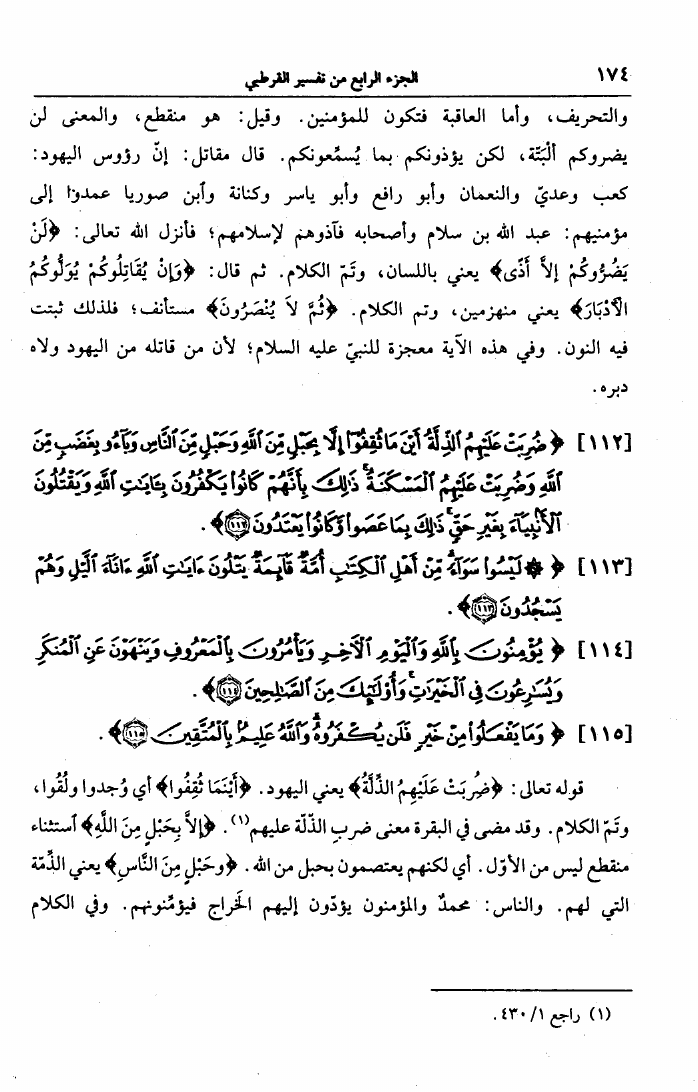 ١٧٤ الجزء الرابع من تفسير القرطبي
والتحريف، وأما العاقبة فتكون للمؤمنين. وقيل: هو منقطع، والمعنى لن
يضروكم ألْبَتَّة، لكن يؤذونكم بما يُسمِّعونكم. قال مقاتل: إنّ رؤوس اليهود:
كعب وعديّ والنعمان وأبو رافع وأبو ياسر وكنانة وأبن صوريا عمدوا إلى
مؤمنيهم: عبد الله بن سلام وأصحابه فآذوهم لإسلامهم؛ فأنزل الله تعالى: ﴿لَنْ
يَضُرُّوكُمْ إلاَّ أَذًى﴾ يعني باللسان، وتَمّ الكلام. ثم قال: ﴿وَإِنْ يُقَاتِلُوكُمْ يُوَلُّوكُمُ
الْأَدْبَارَ﴾ يعني منهزمين، وتم الكلام. ﴿ثُمَّ لاَ يُنْصَرُونَ﴾ مستأنف؛ فلذلك ثبتت
فيه النون. وفي هذه الآية معجزة للنبيّ عليه السلام؛ لأن من قاتله من اليهود ولاه
دبره.
[١١٢] ﴿ ضُرِبَتْ عَلَيْهِمُ الذِّلَّةُ أَيْنَ مَا ثُقِفُوٓا إِلَّا بِحَبْلٍ مِّنَ ٱللَّهِ وَحَبْلٍ مِّنَ ٱلنَّاسِ وَبَآءُو بِغَضَبٍ مِّنَ
ٱللَّهِ وَضُرِبَتْ عَلَيْهِمُ ٱلْمَسْكَنَةُ ذَٰلِكَ بِأَنَّهُمْ كَانُوا يَكْفُرُونَ بِـَٔايَٰتِ ٱللَّهِ وَيَقْتُلُونَ
ٱلْأَنۢبِيَآءَ بِغَيْرِ حَقٍّ ذَٰلِكَ بِمَا عَصَوا وَّكَانُوا يَعْتَدُونَ ﴿١١٢﴾ ﴾.
[١١٣] ﴿ ۞ لَيْسُوا سَوَآءً مِّنْ أَهْلِ ٱلْكِتَٰبِ أُمَّةٌ قَآئِمَةٌ يَتْلُونَ ءَايَٰتِ ٱللَّهِ ءَانَآءَ ٱلَّيْلِ وَهُمْ
يَسْجُدُونَ ﴿١١٣﴾ ﴾.
[١١٤] ﴿ يُؤْمِنُونَ بِٱللَّهِ وَٱلْيَوْمِ ٱلْأَخِرِ وَيَأْمُرُونَ بِٱلْمَعْرُوفِ وَيَنْهَوْنَ عَنِ ٱلْمُنكَرِ
وَيُسَٰرِعُونَ فِي ٱلْخَيْرَٰتِ وَأُو۟لَٰٓئِكَ مِنَ ٱلصَّٰلِحِينَ ﴿١١٤﴾ ﴾.
[١١٥] ﴿ وَمَا يَفْعَلُوا مِنْ خَيْرٍ فَلَن يُكْفَرُوهُ وَٱللَّهُ عَلِيمٌۢ بِٱلْمُتَّقِينَ ﴿١١٥﴾ ﴾.
قوله تعالى: ﴿ضُرِبَتْ عَلَيْهِمُ الذِّلَّةُ﴾ يعني اليهود. ﴿أَيْنَمَا ثُقِفُوا﴾ أي وُجدوا ولُقُوا،
وتَمّ الكلام. وقد مضى في البقرة معنى ضرب الذّلّة عليهم(١). ﴿إِلاَّ بِحَبْلٍ مِنَ اللَّهِ﴾ أستثناء
منقطع ليس من الأوّل. أي لكنهم يعتصمون بحبل من الله. ﴿وحَبْلٍ مِنَ النَّاسِ﴾ يعني الذِّمّة
التي لهم. والناس: محمدٌ والمؤمنون يؤدّون إليهم الخراج فيؤمِّنونهم. وفي الكلام
(١) راجع ١/ ٤٣٠.